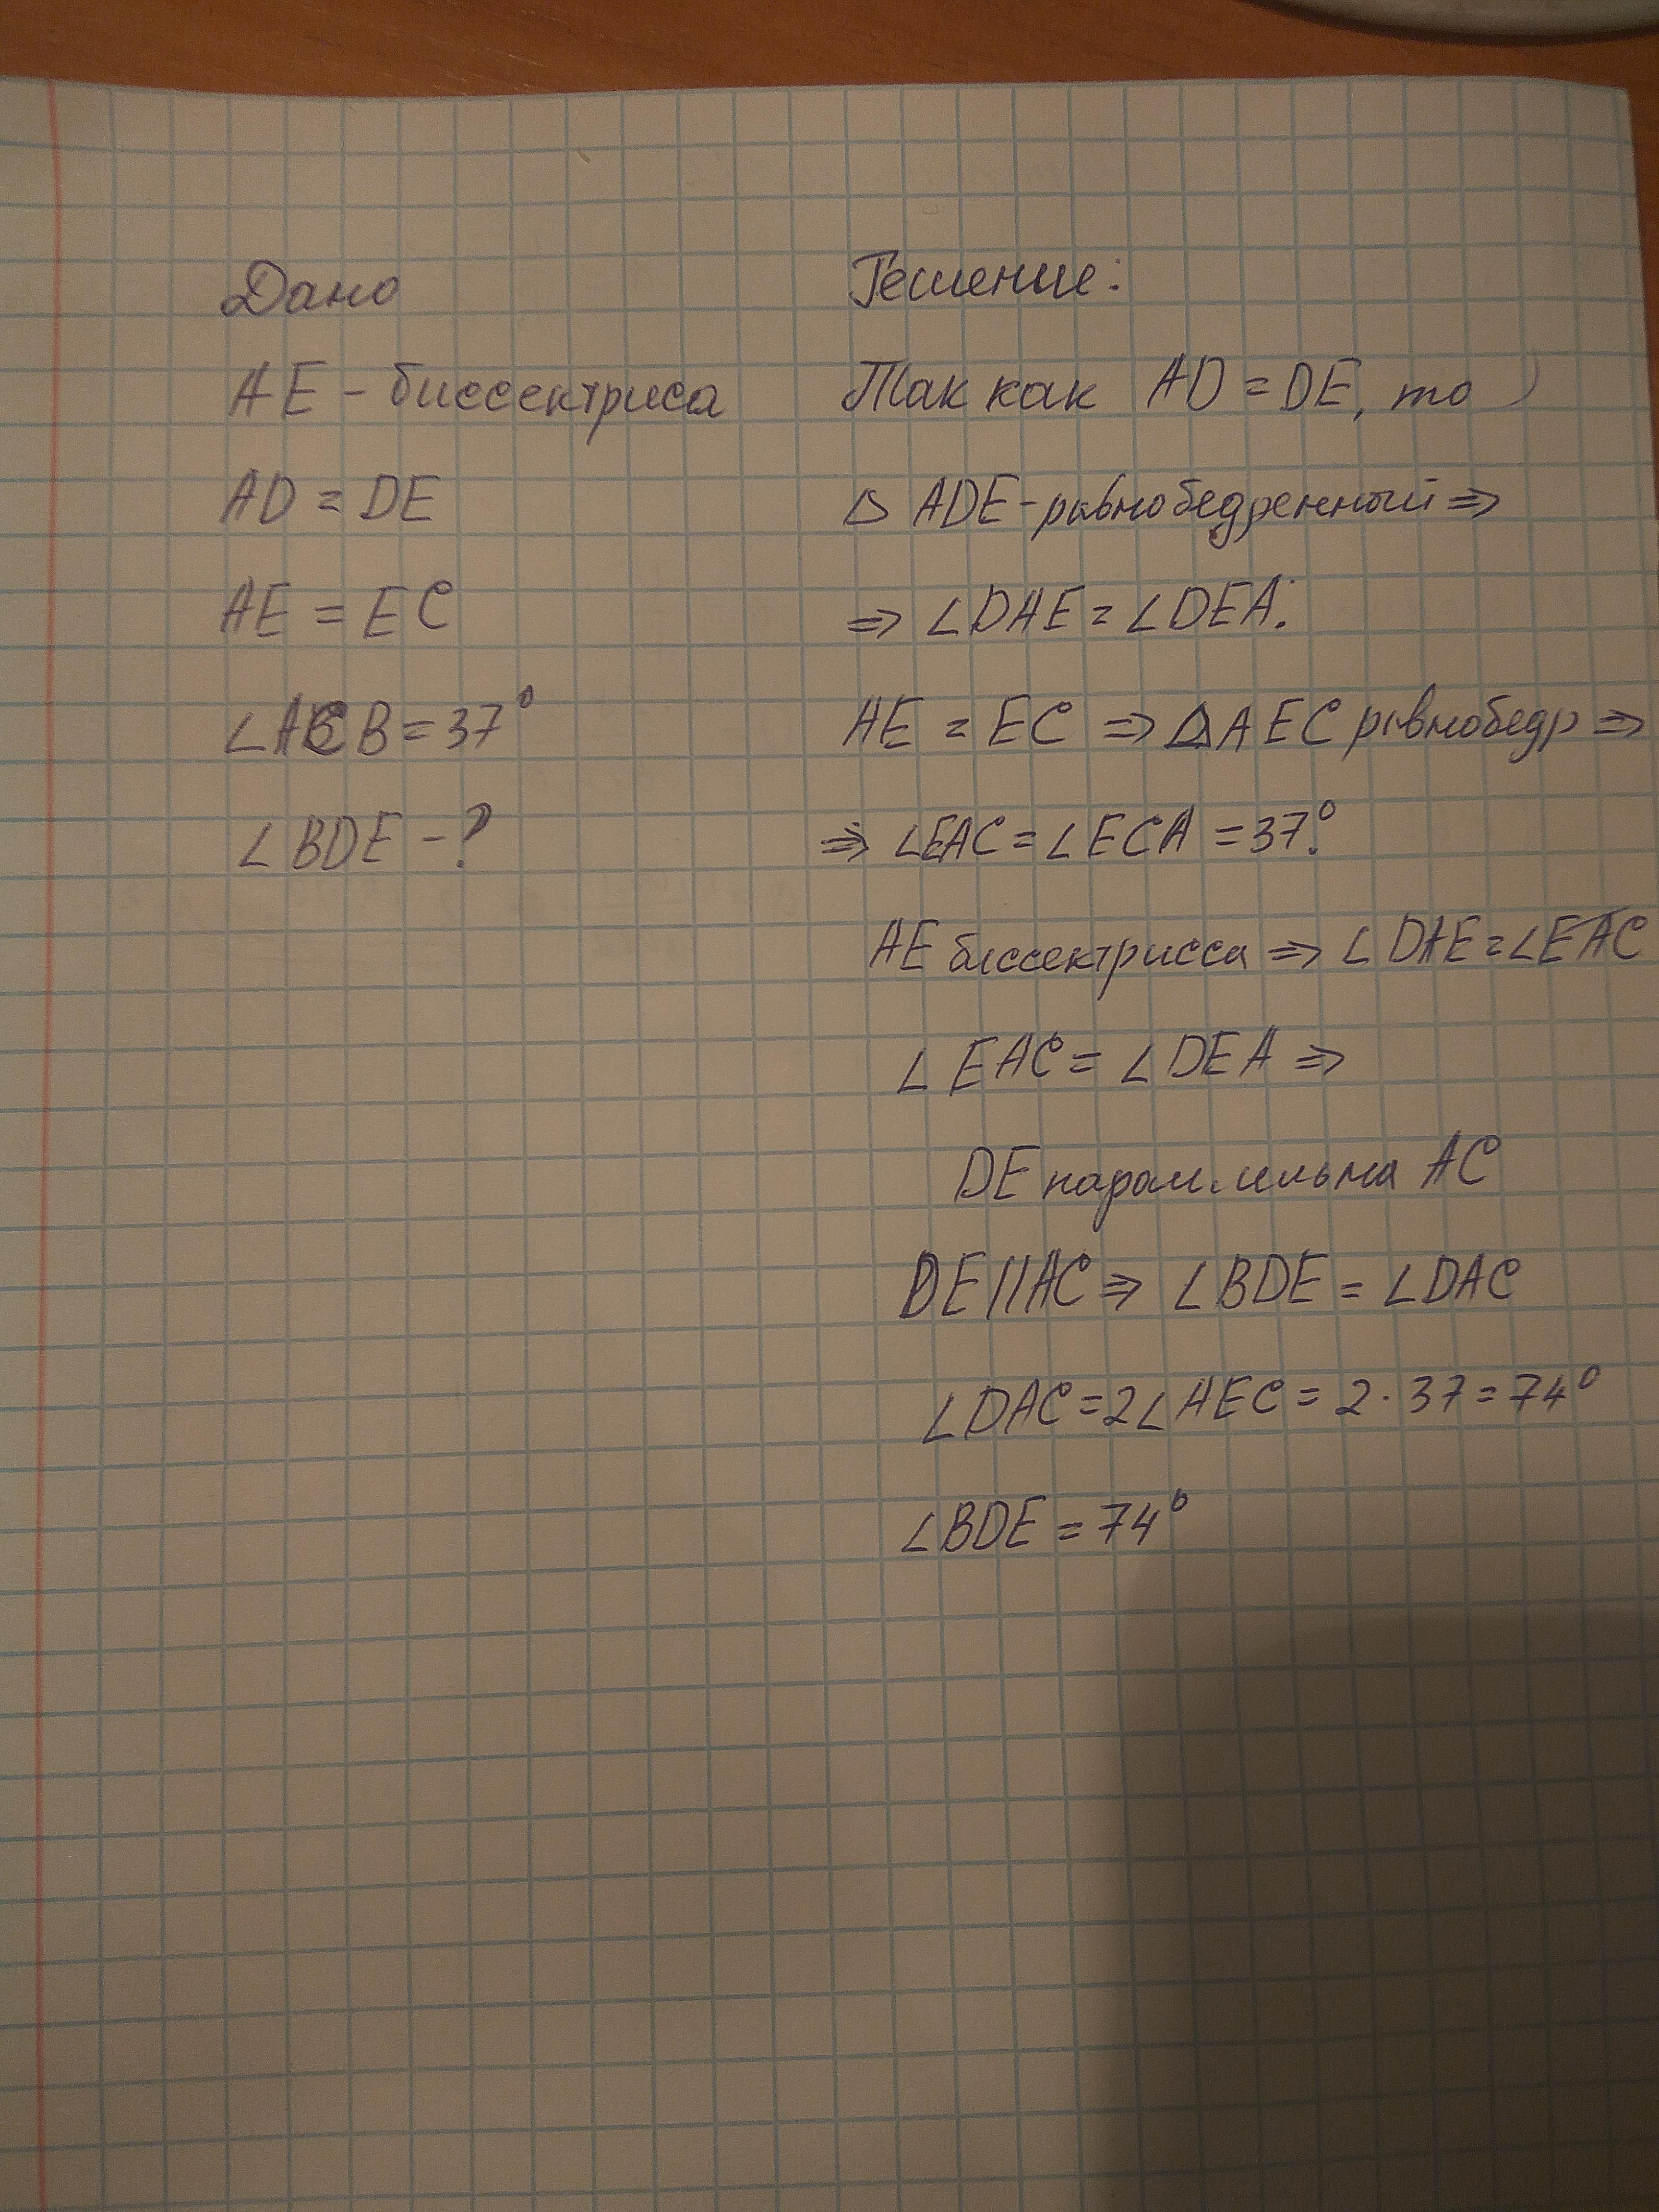 Дано
АЕ - биссектриса
AD = DE
AE = EC
∠ACB = 37°
∠BDE - ?
Решение:
Так как AD = DE, то
△ ADE - равнобедренный ⇒
⇒ ∠DAE = ∠DEA.
AE = EC ⇒ △AEC равнобедр ⇒
⇒ ∠EAC = ∠ECA = 37°.
АЕ биссектрисса ⇒ ∠DAE = ∠EAC
∠EAC = ∠DEA ⇒
DE AC
DE || AC ⇒ ∠BDE = ∠DAC
∠DAC = 2∠AEC = 2 · 37 = 74°
∠BDE = 74°